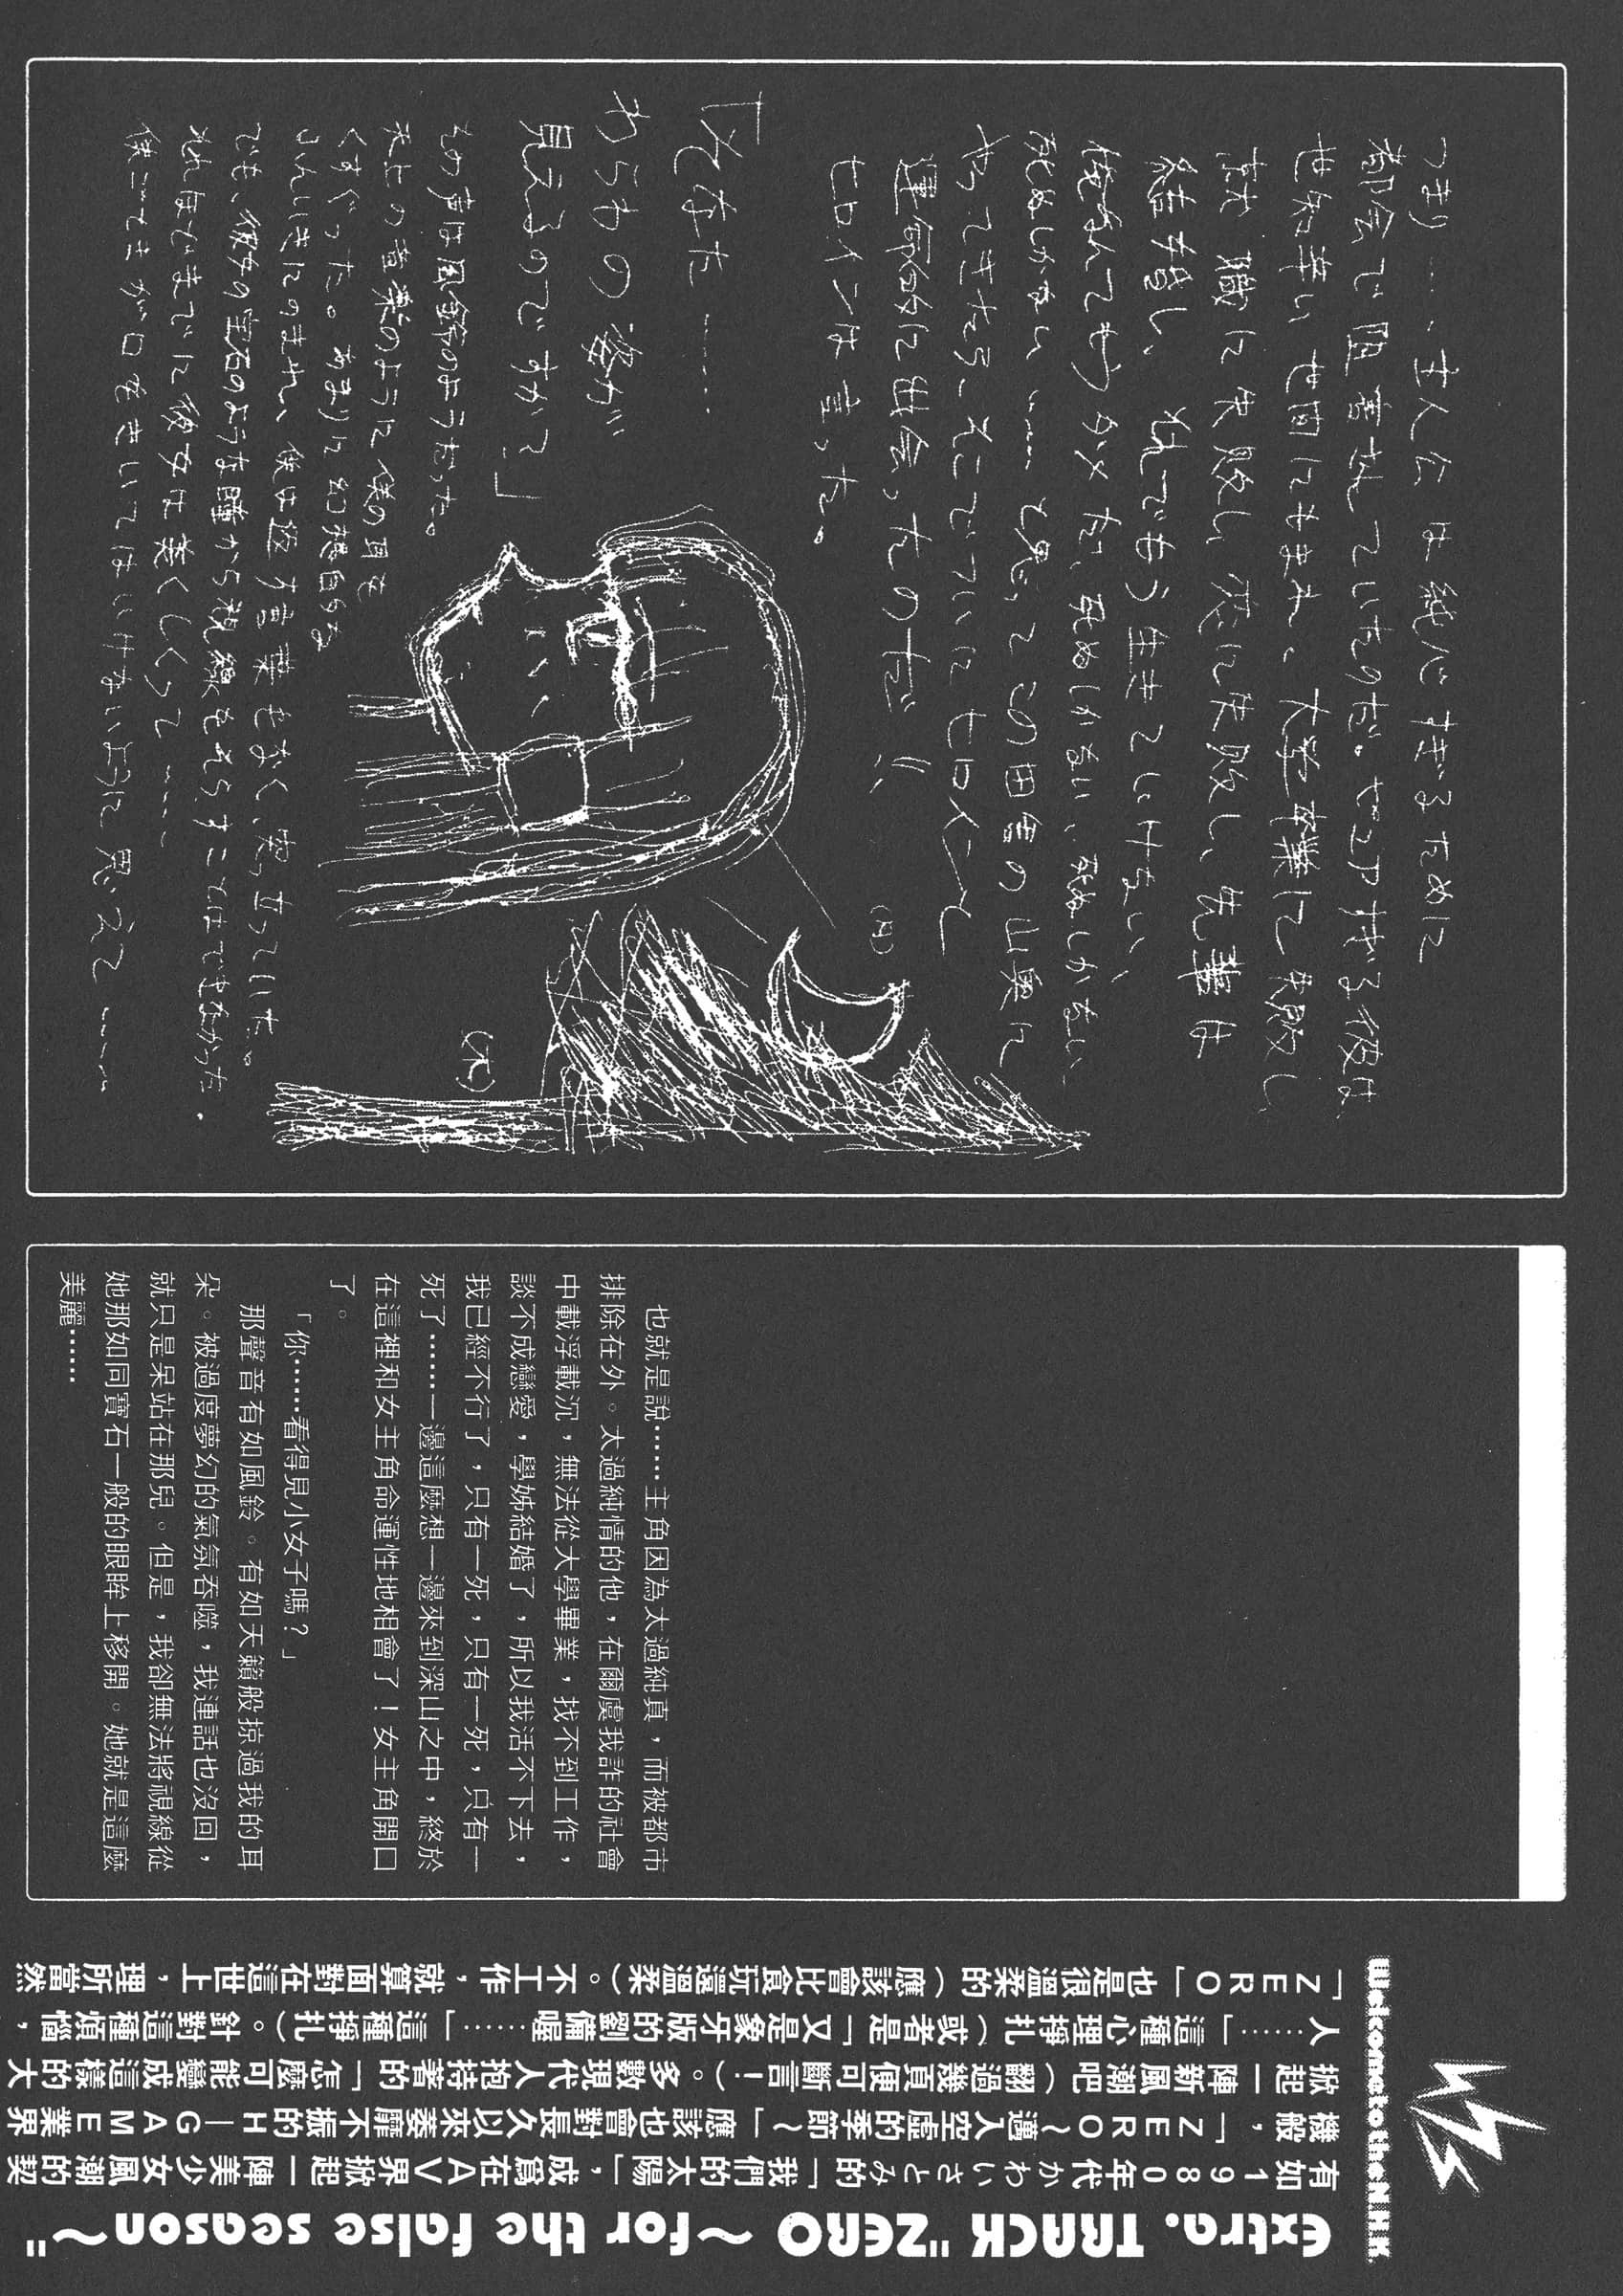 つまり……、主人公は純心すぎるために
都会で阻害されていたのだ。ピュアすぎる彼は
世知辛い世間にもまれ、大学卒業に失敗し、
就職に失敗し、恋に失敗し、先輩は
結婚し、それでもう生きていけない、
俺なんてもうダメだ、死ぬしかない、死ぬしかない、
死ぬしかない……と思ってこの田舎の山奥に
やってきたら、そこでついにヒロインと
運命的に出会ったのだ!!
ヒロインは言った。
「そなた……
わらわの姿が
見えるのですか?」
その声は風鈴のようだった。
天上の音楽のように僕の耳を
くすぐった。あまりに幻想的な
ふんいきにのまれ、僕は返す言葉もなく突っ立っていた。
でも、彼女の宝石のような瞳から視線をそらすことはできなかった。
それほどまでに彼女は美しくって……
僕ごときが口をきいてはいけないように思えて……
(月)
(木)
也就是說……主角因為太過純真，而被都市
排除在外。太過純情的他，在爾虞我詐的社會
中載浮載沉，無法從大學畢業，找不到工作，
談不成戀愛，學姊結婚了，所以我活不下去，
我已經不行了，只有一死，只有一死，只有一
死了……一邊這麼想一邊來到深山之中，終於
在這裡和女主角命運性地相會了！女主角開口
了。
「你……看得見小女子嗎？」
那聲音有如風鈴。有如天籟般掠過我的耳
朵。被過度夢幻的氣氛吞噬，我連話也沒回，
就只是呆站在那兒。但是，我卻無法將視線從
她那如同寶石一般的眼眸上移開。她就是這麼
美麗……
Welcome to the N.H.K.
Extra. TRACK "ZERO ～for the false season～"
有如1980年代かわいさとみ的「我們的太陽」，成為在AV界掀起一陣美少女風潮的契
機般，「ZERO～邁入空虛的季節～」應該也會對長久以來萎靡不振的H—GAME業界
掀起一陣新風潮吧（翻過幾頁便可斷言！）。多數現代人抱持著的「怎麼可能變成這樣的大
人……」這種心理掙扎（或者是「又是象牙版的劉備喔……」這種掙扎）。針對這種煩惱，
「ZERO」也是很溫柔的（應該會比食玩還溫柔）。不工作，就算面對在這世上，理所當然